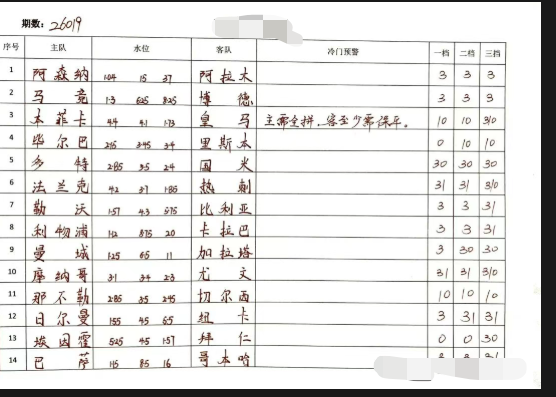 期数: 26019
序号 主队 水位 客队 冷门预警 一档 二档 三档
1 阿森纳 1.04 15 37 阿拉木 3 3 3
2 马竞 1.3 5.25 8.25 博德 3 3 3
3 本菲卡 4.4 4.1 1.73 皇马 主需全拼、客至少需保平。 10 10 310
4 毕尔巴 2.15 3.45 3.4 里斯本 0 10 10
5 多特 2.85 3.5 2.4 国米 30 30 30
6 法兰克 4.2 3.7 1.85 热刺 31 31 310
7 勒沃 1.57 4.3 5.75 比利亚 3 3 31
8 利物浦 1.12 8.75 20 卡拉巴 3 3 31
9 曼城 1.25 6.5 11 加拉塔 3 30 30
10 摩纳哥 3.1 3.4 2.3 尤文 31 31 310
11 那不勒 2.85 3.5 2.45 切尔西 10 10 10
12 日尔曼 1.55 4.5 6.5 纽卡 3 31 31
13 埃因霍 5.25 4.5 1.57 拜仁 0 0 30
14 巴萨 1.15 8.5 16 哥本哈